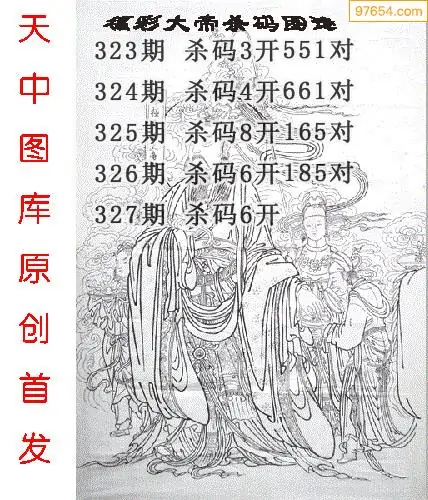 97654.com
福彩大帝杀码图迷
323期 杀码3开551对
324期 杀码4开661对
325期 杀码8开165对
326期 杀码6开185对
327期 杀码6开
天中图库原创首发